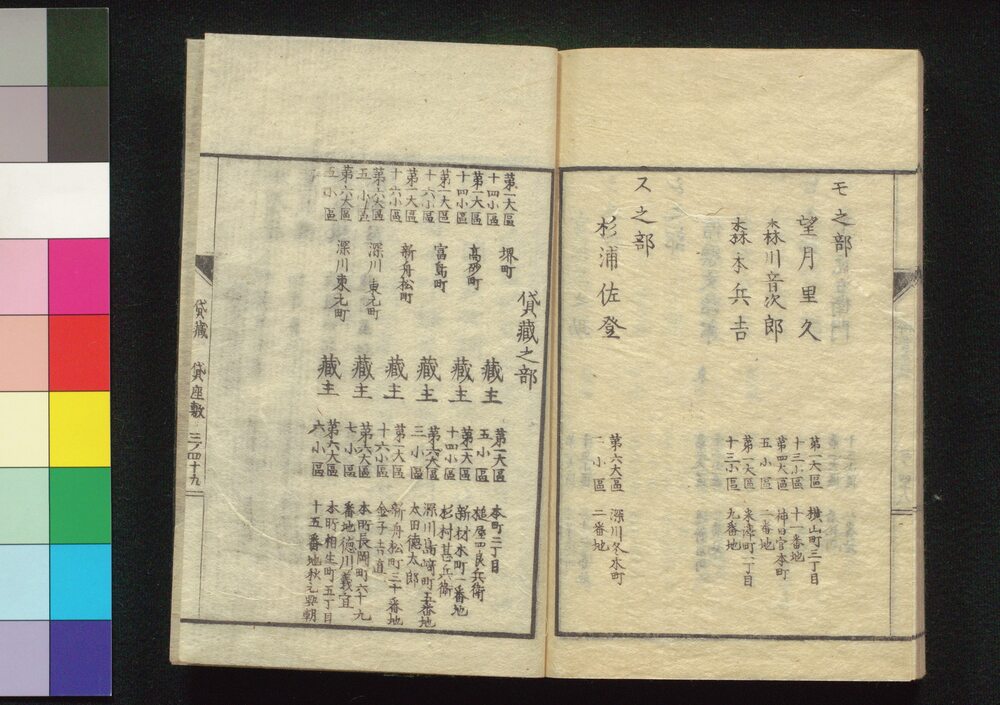 モ之部
望月里久
第一大區
十三小區
横山町三丁目
十一番地
森川音次郎
第四大區
五小區
一番地
森本兵吉
第一大區
十三小區
一丁目
九番地
ス之部
杉浦佐登
第六大區
二小區
深川冬木町
二番地
貸藏之部
第一大區
十四小區
堺町
藏主
第一大區
五小區
本町二丁目
第一大區
十四小區
高砂町
藏主
第一大區
十四小區
新材木町一番地
杉村甚兵衛
第一大區
十六小區
富島町
藏主
第六大區
三小區
深川高𣘺町五番地
太田德太郎
第一大區
十六小區
新舟松町
藏主
第一大區
十六小區
新舟松町三十番地
金子吉直
第六大區
五小區
深川東元町
藏主
第六大區
七小區
本所長岡町六十九
番地德川義宜
第六大區
五小區
深川東元町
藏主
第六大區
六小區
本所相生町五丁目
十五番地秋元興朝
貸藏 貸座敷 三ノ四十九